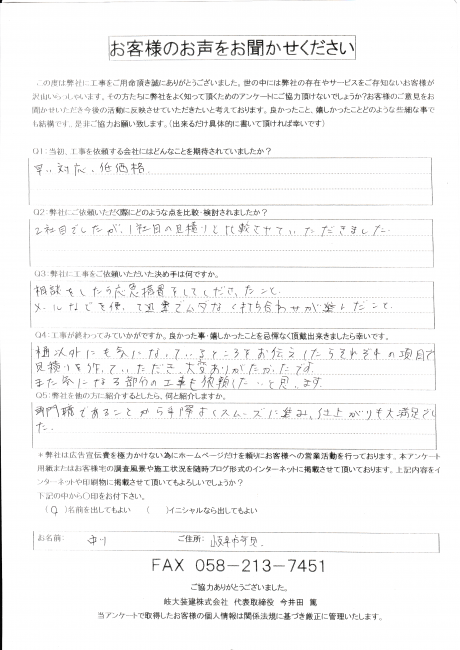 お客様のお声をお聞かせください
この度は弊社に工事をご用命頂き誠にありがとうございました。世の中には弊社の存在やサービスをご存知ないお客様が
沢山いらっしゃいます。その方たちに弊社をよく知って頂くためのアンケートにご協力頂けないでしょうか?お客様のご意見をお
聞かせいただき今後の活動に反映させていただきたいと考えております。良かったこと、嬉しかったことどのような些細な事で
も結構です。是非ご協力お願い致します。（出来るだけ具体的に書いて頂ければ幸いです）
Q1:当初、工事を依頼する会社にはどんなことを期待されていましたか?
早い対応、低価格
Q2:弊社にご依頼いただく際にどのような点を比較・検討されましたか?
2社目でしたが、1社目の見積りと比較させていただきました
Q3:弊社に工事をご依頼いただいた決め手は何ですか。
相談をしたら応急措置をしてくださったこと
メールなどを使って迅速でムダなく打ち合わせが進んだこと
Q4:工事が終わってみていかがですか。良かった事・嬉しかったことを忌憚なく頂戴出来ましたら幸いです。
樋以外にも気になっているところをお伝えしたらそれぞれの項目で
見積りを作っていただき、大変ありがたかったです。
また気になる部分の工事も依頼したいと思います
Q5:弊社を他の方に紹介するとしたら、何と紹介しますか。
専門職であることから手際よくスムーズに進み、仕上がりも大満足でし
た.
＊弊社は広告宣伝費を極力かけない為にホームページだけを頼りにお客様への営業活動を行っております。本アンケート
用紙またはお客様宅の調査風景や施工状況を随時ブログ形式のインターネットに掲載させて頂いております。上記内容をイ
ンターネットや印刷物に掲載させて頂いてもよろしいでしょうか?
下記の中から〇印をお付下さい。
（〇）名前を出してもよい （ ）イニシャルなら出してもよい
お名前: 中川 ご住所: 岐阜市
FAX 058-213-7451
ご協力ありがとうございました。
岐大装建株式会社 代表取締役 今井田 篤
当アンケートで取得したお客様の個人情報は関係法規に基づき厳正に管理いたします。